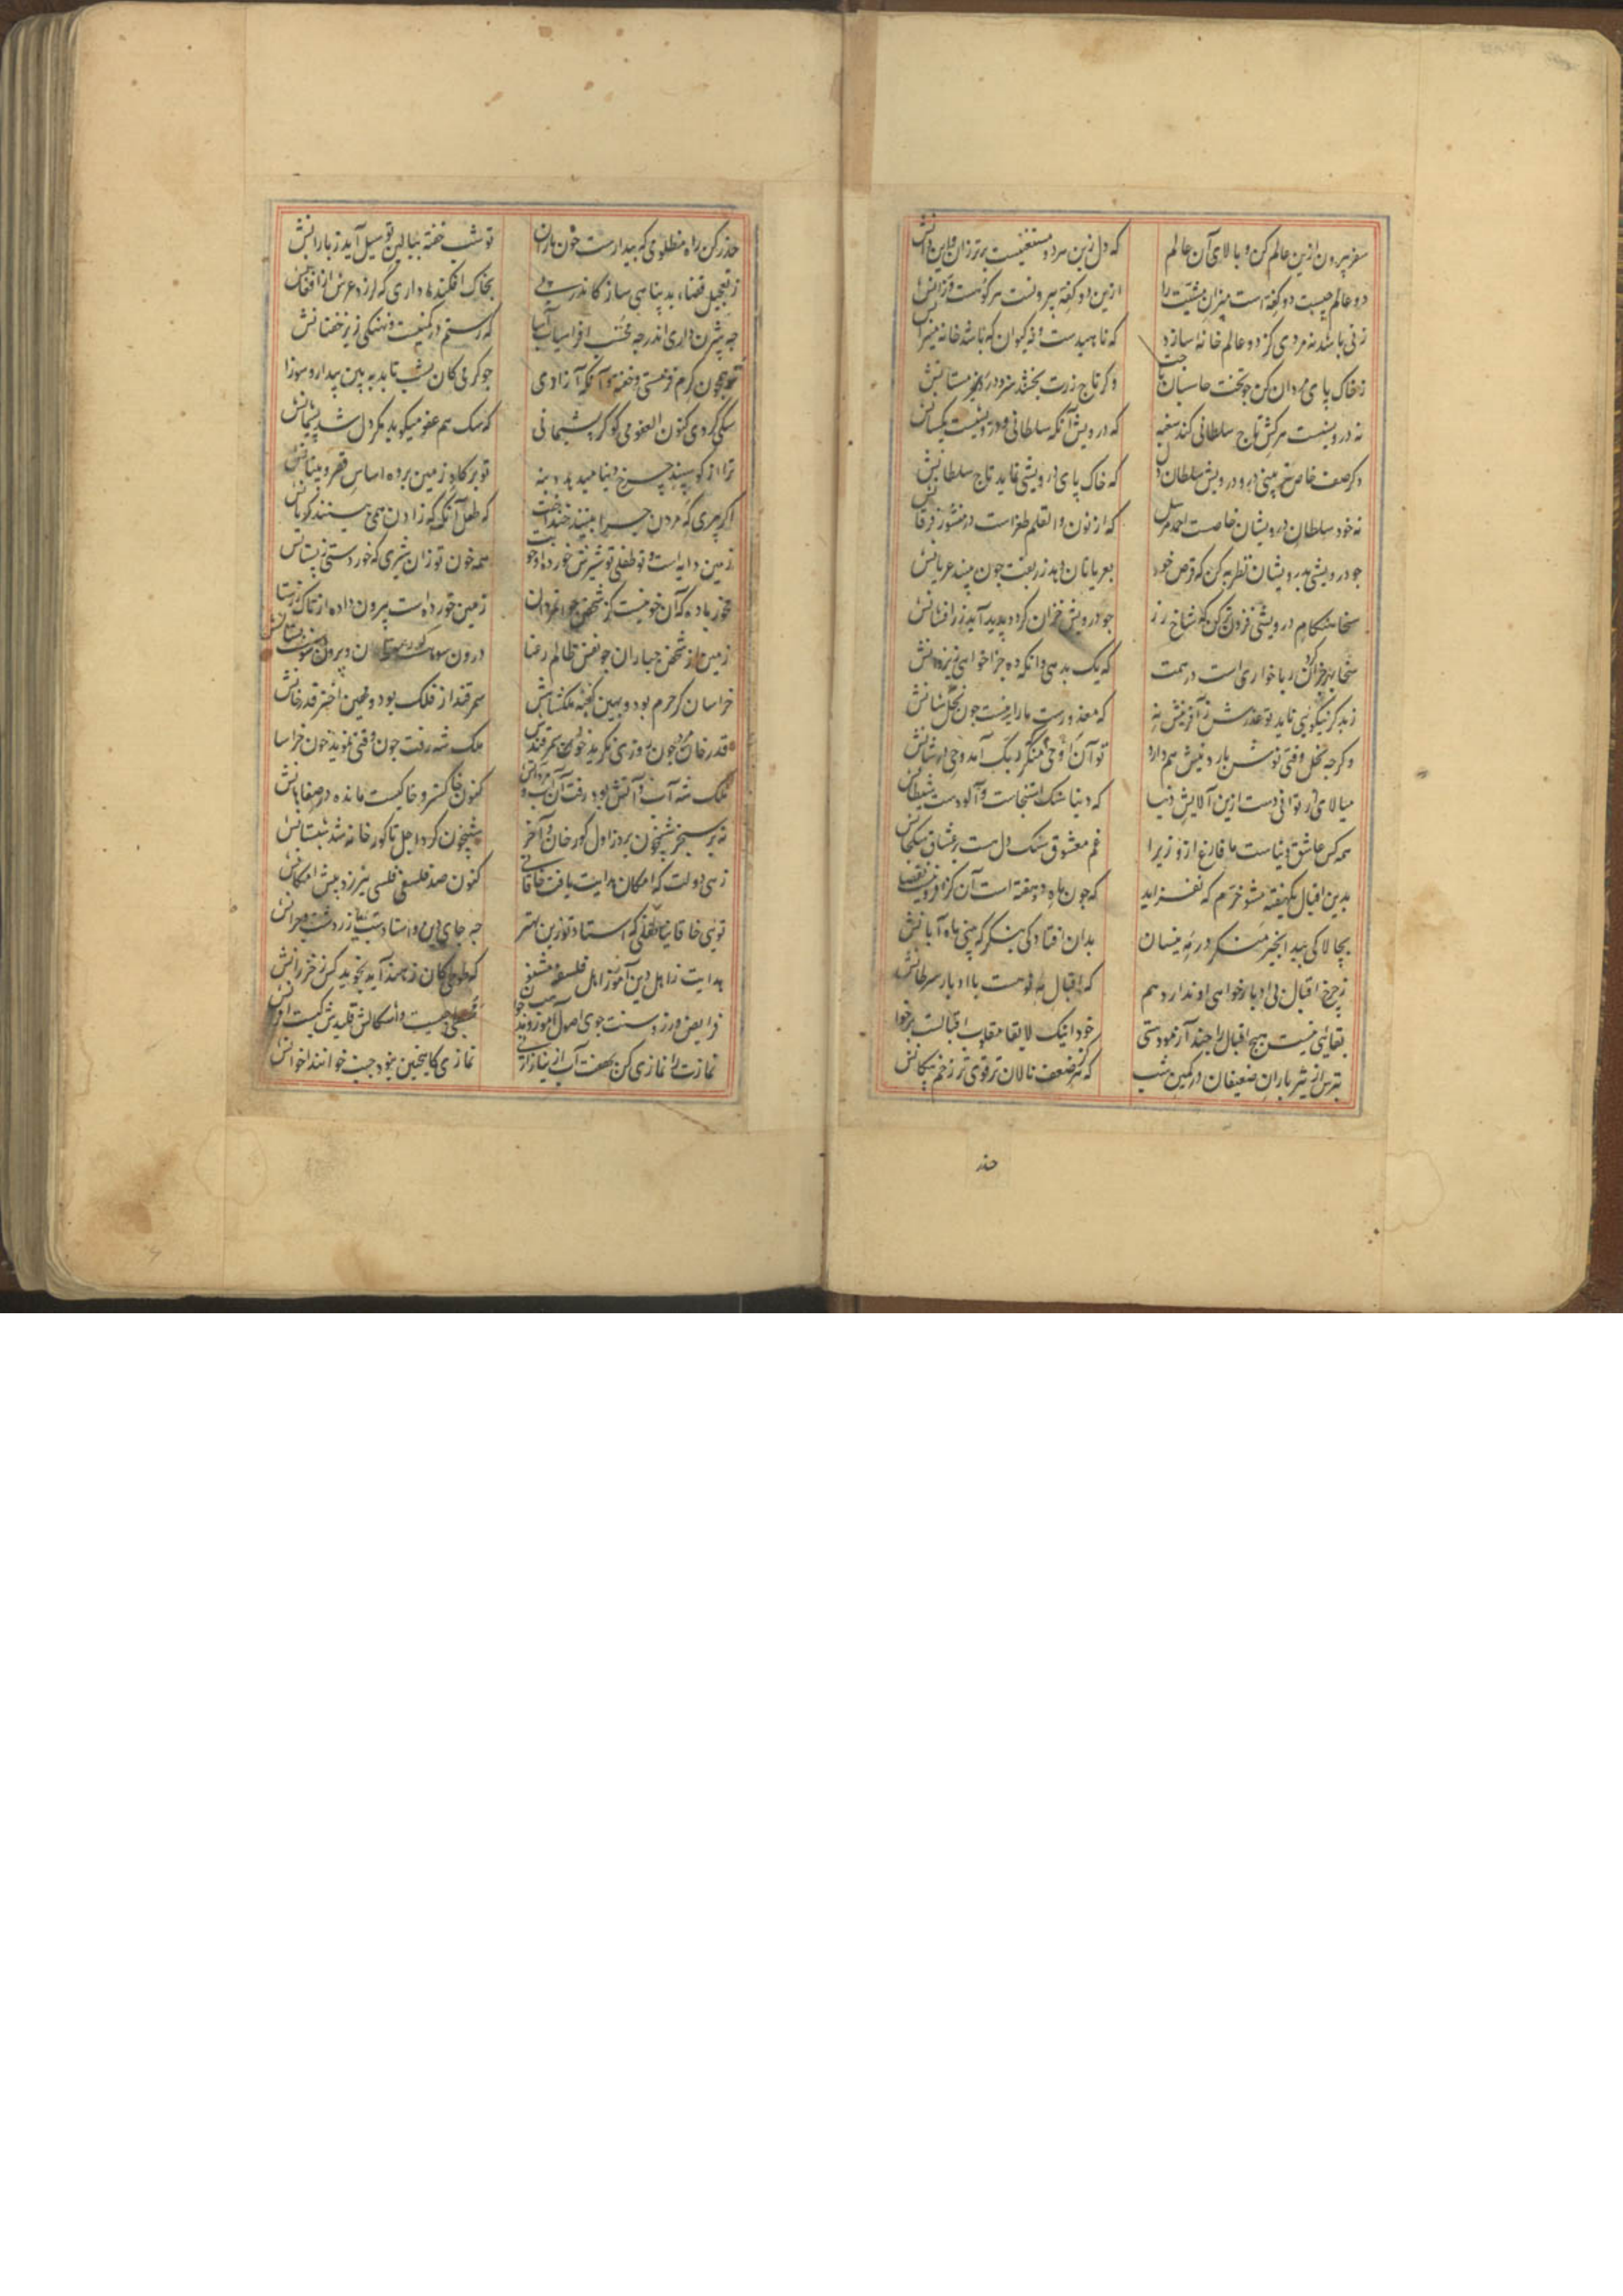 سفر بیرون ازین عالم کن و بالای آن عالم
که دل زین هر دو مستغنیست برتر زان و این دانش
دو عالم چیست دو کفه است میزان مشیت را
ازین دو کفه بیرونست هر کو هست وزانش
زنی باشد نه مردی کز دو عالم خانهٔ سازد
که ناهیدست و نه کیوان که باشد خانه میزانش
ز خاک پای مردان کن چو تخت حاسبان تاجت
و گر تاج زرت بخشند سر دزد و مستانش
نه درویشست هر کش تاج سلطانی کند سغبه
که درویش آنکه سلطانی و درویشیست یکسانش
و گر صف خاص تر بینی درو درویش سلطان دل
که خاک پای درویشی نماید تاج سلطانش
نه خود سلطان درویشان خاصست احمد مرسل
که از نون والقلم طغراست در منشور فرقانش
جو درویشی بدرویشان نظر به کن که قرص خور
بعریانان دهد زربفت جون بیند عریانش
سخا هنکام درویشی فزون تر کن که شاخ رز
جو درویش خزان کردد پدید آید زر افشانش
سخا بهر جزا کردن ربا خواری است در همت
که یک بدهی و آنکه ده جزا خواهی ز یزدانش
ز بد کر نیکویی ناید تو عذرش ز آفرینش نه
که معذورست مار ار نیست جون نحل شانش
و کرجه نحل وقتی نوش بارد نیش هم دارد
تو آن منکر که اوحی ربک آمد وحی در شانش
میالای ار توانی دست ازین آلایش دنیا
که دنیا سنک استنجاست و آلودست شیطانش
همه کس عاشق دنیاست ما فارغ ازو زیرا
غم معشوق سنک دل هست بر عشاق سکجانش
بدین اقبال یکهفته مشو خرم که نفزاید
که جون ماه دو هفته است آن کز افزونیست نقصانش
بجالاکی بید انجیر منکر در مه نیسان
بدان افتادکی بنکر که بینی ماه آبانش
ز چرخ اقبال بی ادبار خواهی او ندارد هم
که اقبال مه نو هست با ادبار سرطانش
بقائی نیست هیج اقبال را جند آزمودستی
خود اینک لابقا مقلوب اقبالست برخوانش
بترس از تیر باران ضعیفان در کمین شب
که هر کو ضعف نالان تر قوی تر زخم پیکانش
حذر
حذر کن زاه مظلومی که بیدارست خون باران
تو شب خفته ببالین تو سیل آید ز بارانش
ز تعجیل قضاء بد پناهی ساز کاندر پی
بخاک افکنده داری که لرزد عرش از افغانش
چه بیژن داری اندر چه مخسب افراسیاب آسا
که رستم در کمینست و نهنکی زیر خفتانش
تو همچون کرم قز مستی و خفته وآنکه آزادی
جو کرمی کان بشب تابد به بین بیدار و سوزانش
سکی کردی کنون العفو می کو کر پشیمانی
که سک هم عفو میکوید مکر دل شد پشیمانش
ترا از کوسپند چرخ دنیا میدهد دنبه
تو بر کاو زمین برده اساس قصر و بنیانش
اکر میری که مردن جیرا بینند خندانت
که طفل آنکه که زادن همی بینند کریانش
زمین دایه است و تو طفلی تو شیرش خورده او خونت
همه خون تو زان شیری که خوردستی ز پستانش
مخور باده که آن خونیست کز شخص جوانمردان
زمین خورده است بیرون داده از تاک رزستانش
زمین از شخص جباران جو نفس ظالم رعنا
خراسان کر حرم بود و بهین کعبه ملکشاهش
سمرقند از فلک بود و مهین اختر قدرخانش
قدرخان مرد جون روزی نکرید خود سمرقندش
ملک شه رفت جون وقتی نموید خون خراسانش
ملک شه آب و آتش بود رفت آن آب و مرد آتش
کنون خاکستر و خاکیست مانده در صفاهانش
نه بر سنجر شبیخون برد ز اول کورخان و آخر
شبیخون کرد اجل تا کورخانه شد شبستانش
زهی دولت که امکان هدایت یافت خاقانی
کنون صد فلسفی فلسی نیرزد پیش امکانش
تویی خاقانیا طفلی که استاد تو دین بهتر
چه جای زند و استا
هدایت ز اهل دین آموز ز اهل فلسفه مشنو
فرایض ورز و سنت جوی اصول آموز
نمازت را نمازی کن بهفت آب از نیاز ارنی
نمازی کاینجنین نبود جنب خوانند اخوانش